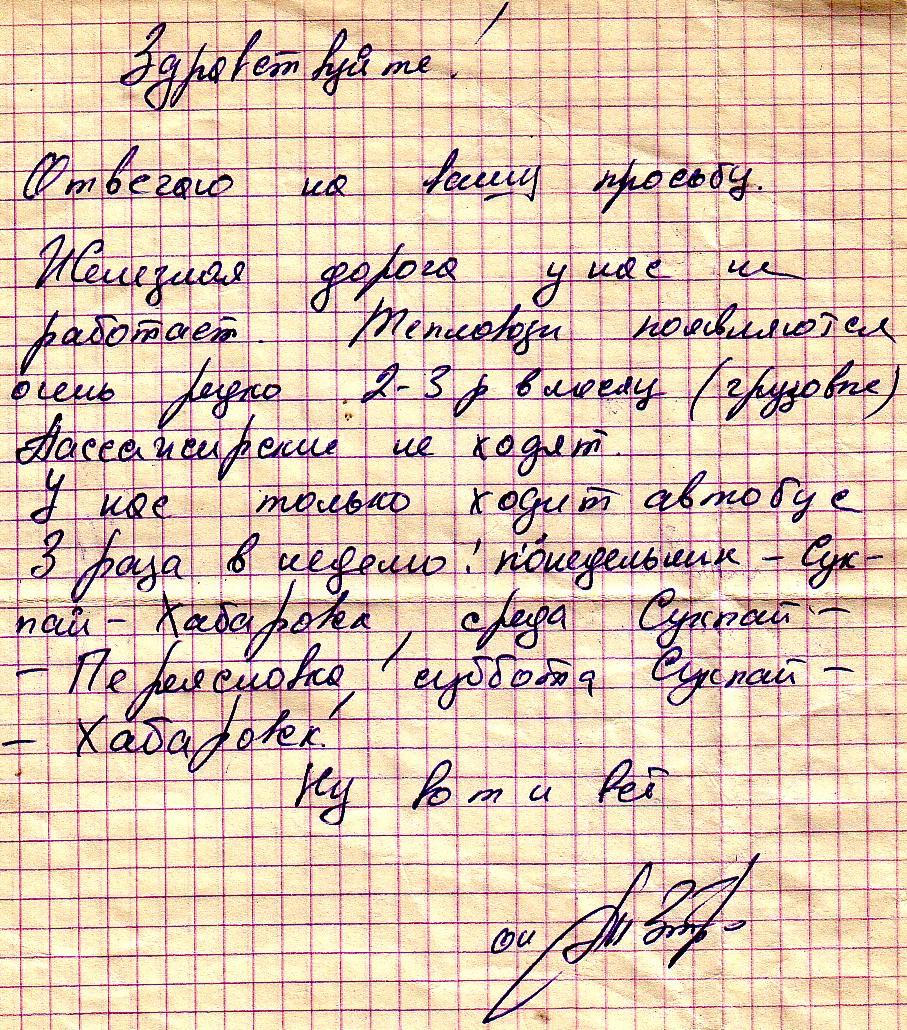 Здравствуйте!
Отвечаю на вашу просьбу.
Железная дорога у нас не
работает. Тепловозы появляются
очень редко 2-3 р в месяц (грузовые)
Пассажирские не ходят.
У нас только ходит автобус
3 раза в неделю! понедельник - Сук-
пай - Хабаровск, среда Сукпай -
- Переясловка, суббота Сукпай -
- Хабаровск!
Ну вот и всё